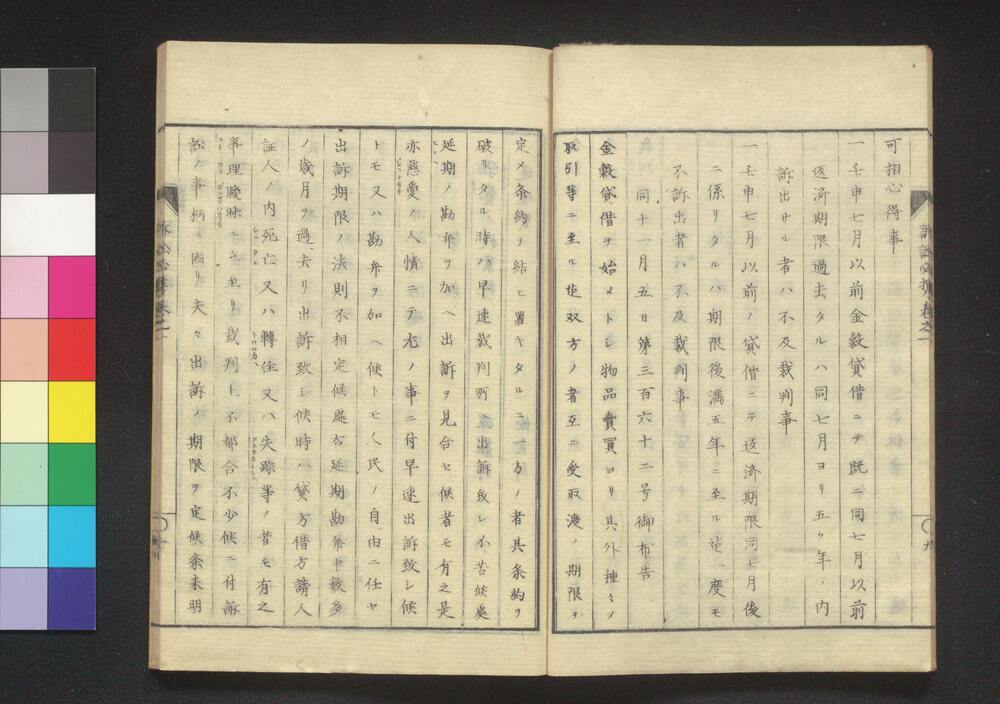 可相心得事
一壬申七月以前金穀貸借ニテ既ニ同七月以前
返済期限過去タルハ同七月ヨリ五ケ年ノ内
訴出サル者ハ不及裁判事
一壬申七月以前ノ貸借ニテ返済期限同七月後
ニ係リタルハ期限後満五年ニ至ル迠一度モ
不訴出者ハ不及裁判事
同十一月五日第三百六十二号御布告
金穀貸借ヲ始メトシ物品賣買ヨリ其外種々ノ
取引等ニ至ル迠双方ノ者互ニ受取渡ノ期限ヲ
定メ条約ヲ結ヒ置キタルニ一方ノ者其条約ヲ
破リタル時ハ早速裁判所ヘ出訴致シ不苦候處
延期ノ勘弁ヲ加ヘ出訴ヲ見合セ候者モ有之是
亦慈愛ノ人情ニテ尤ノ事ニ付早速出訴致シ候
トモ又ハ勘弁ヲ加ヘ候トモ人民ノ自由ニ任セ
出訴期限ノ法則不相定候處右延期勘弁中数多
ノ歳月ヲ過去リ出訴致シ候時ハ貸方借方請人
証人ノ内死亡又ハ轉住又ハ失踪等ノ者モ有之
事理曖昧ニ立至リ裁判上不都合不少候ニ付訴
訟ノ事柄ニ因リ夫々出訴ノ期限ヲ定候条来明